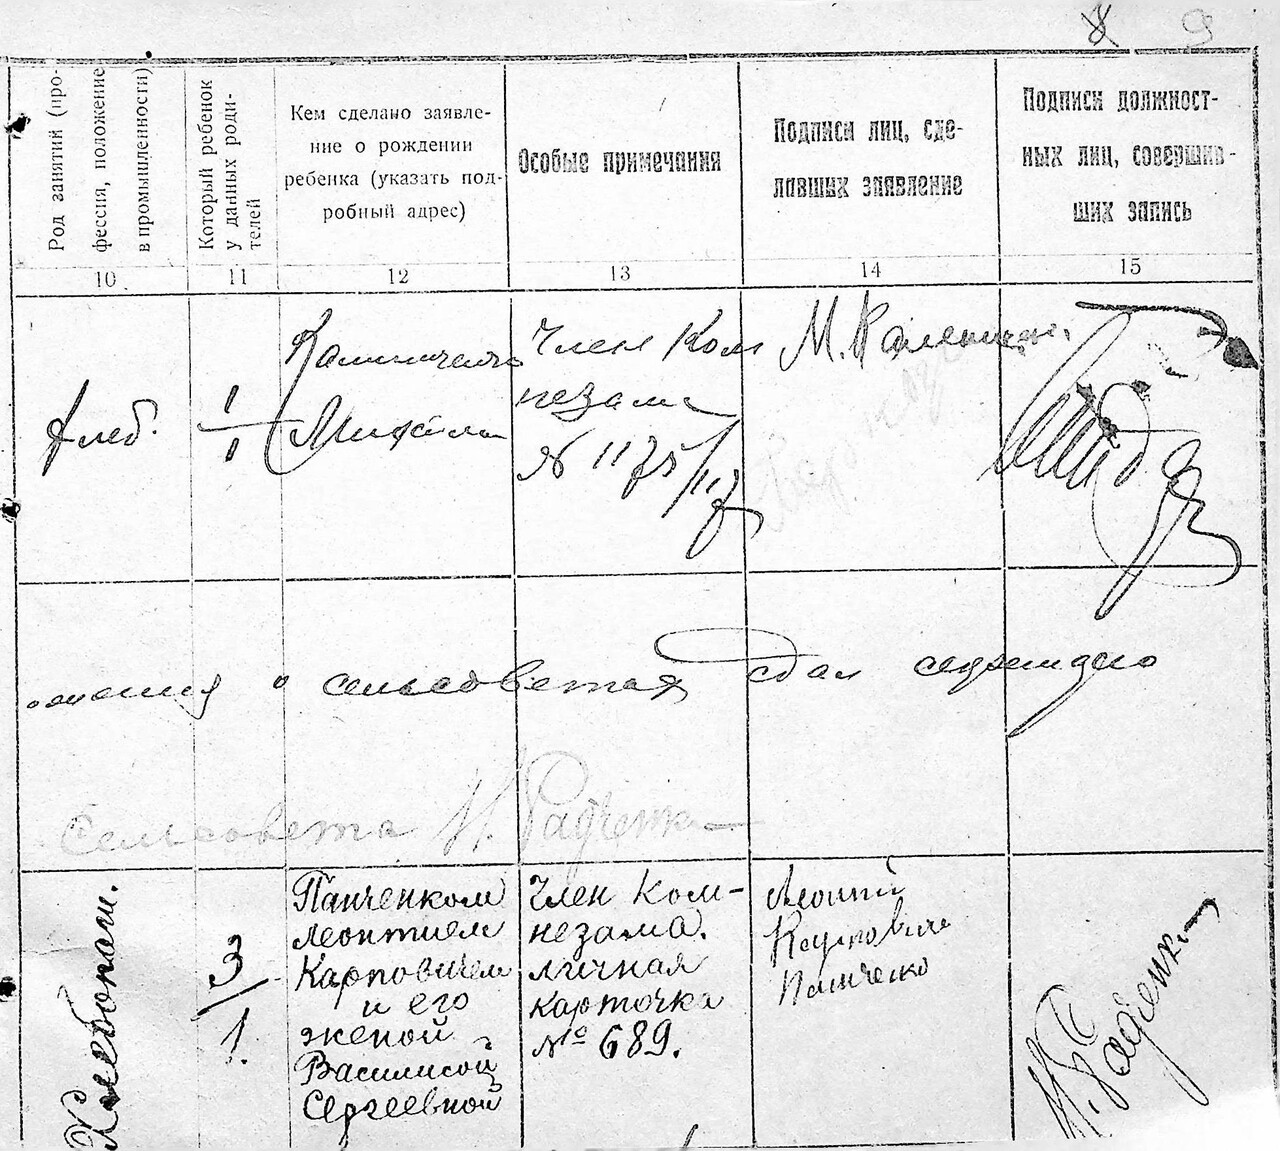 9
Род занятий (про-
фессия, положение
в промышленности)
Который ребенок
у данных роди-
телей
Кем сделано заявле-
ние о рождении
ребенка (указать под-
робный адрес)
Особые примечания
Подписи лиц, сде-
лавших заявление
Подписи должност-
ных лиц, совершив-
ших запись
10
11
12
13
14
15
хлеб.
1
1
Михаил
Член Ком
незама
№ 1175/117
М.
сельсовета сдал
сельсовета Н. Радченко
Хлебопаш.
3/
1.
Панченком
Леонтием
Карповичем
и его
женой
Василисой
Сергеевной
Член Ком-
незама.
личная
карточка
№ 689.
Леонтий
Карпович
Панченко
Н. Радченко